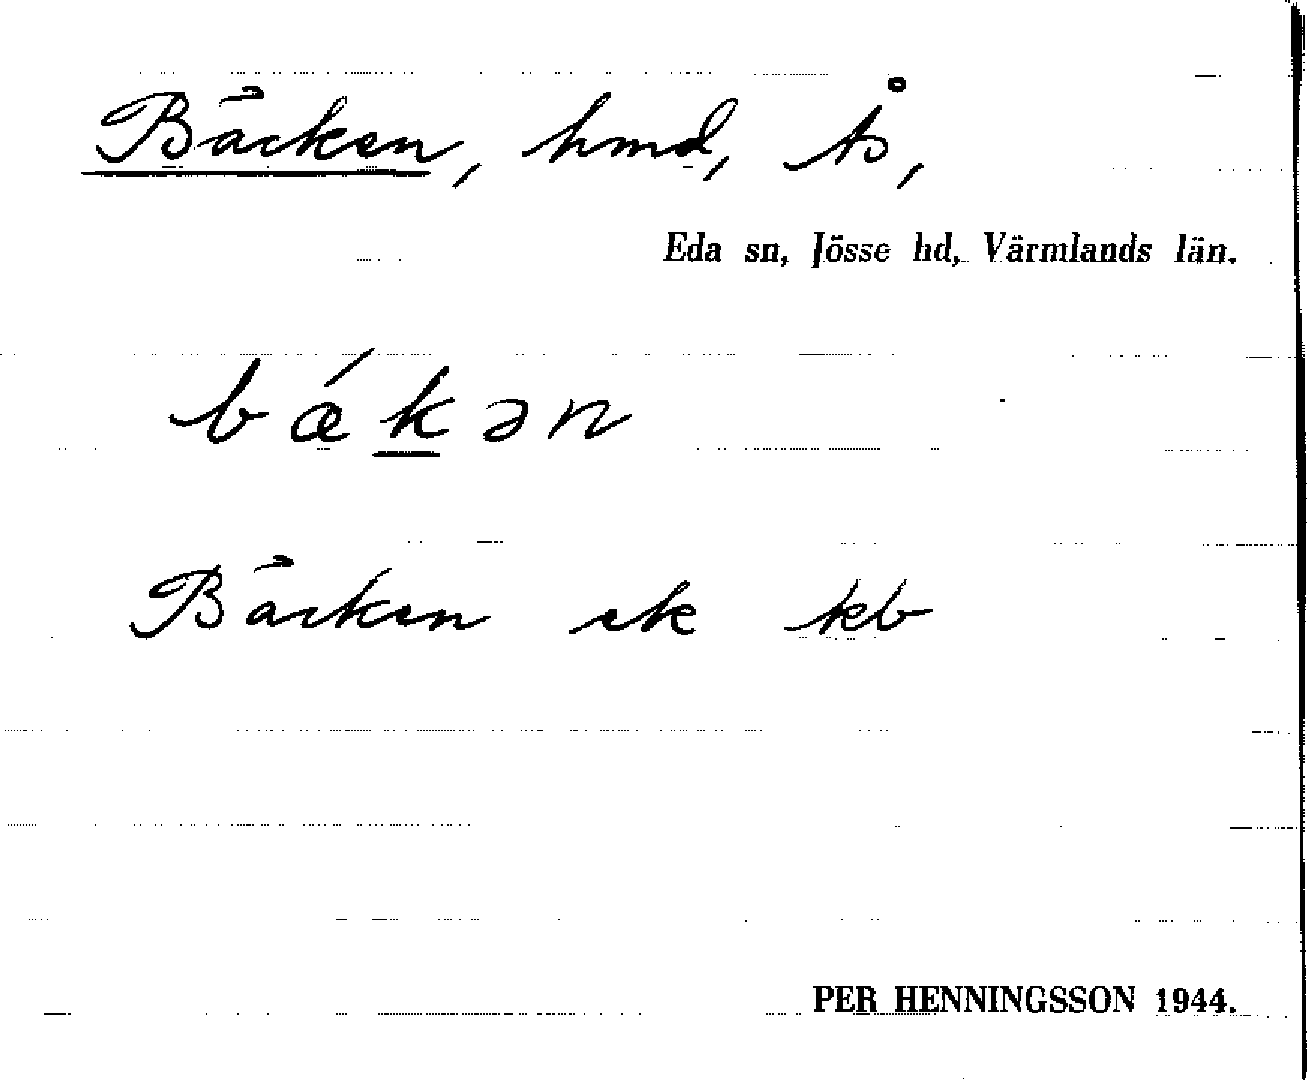 Bäcken, hmd, tå,
Eda sn, Jösse hd, Värmlands län.
bǽkən
Bäcken ek kb
PER HENNINGSSON 1944.